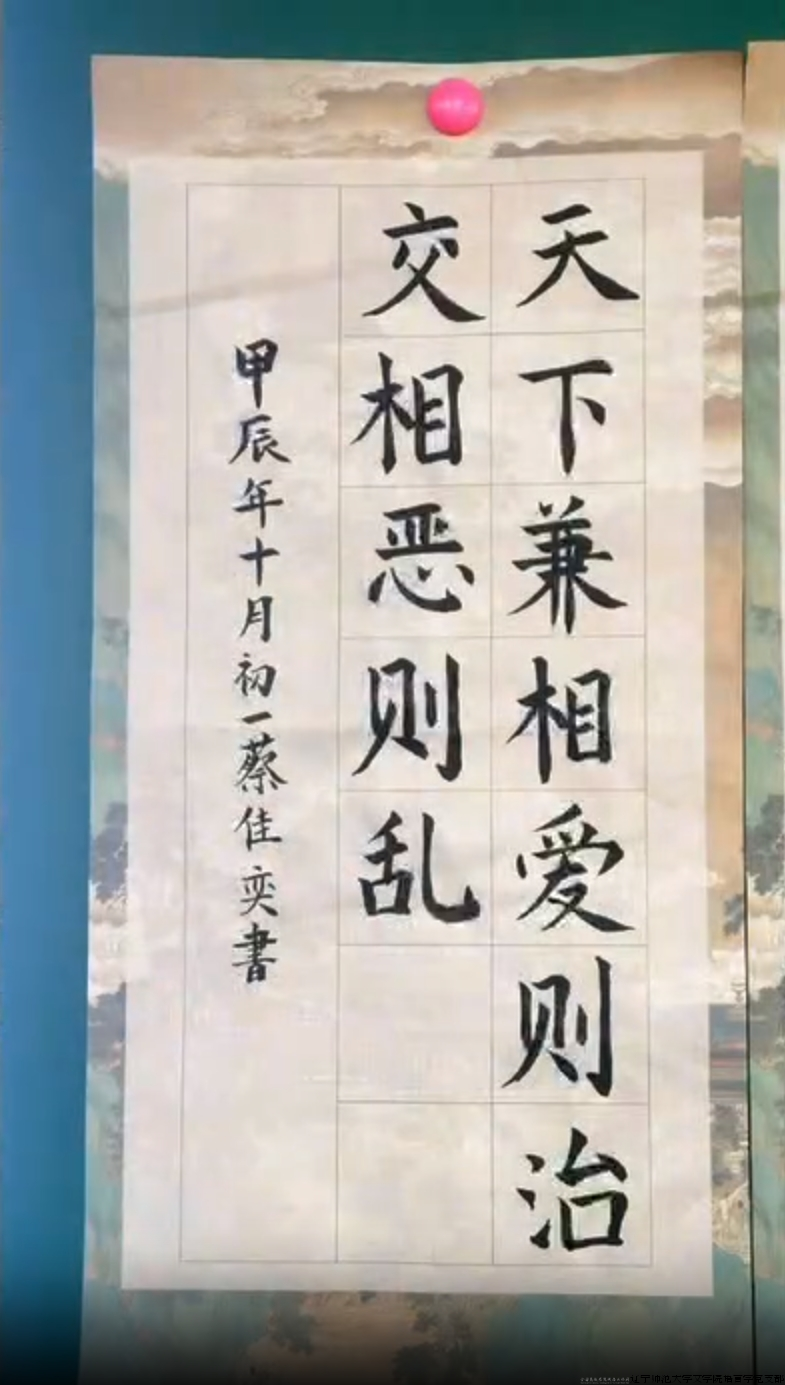 天下兼相爱则治
交相恶则乱
甲辰年十月初一蔡佳奕書